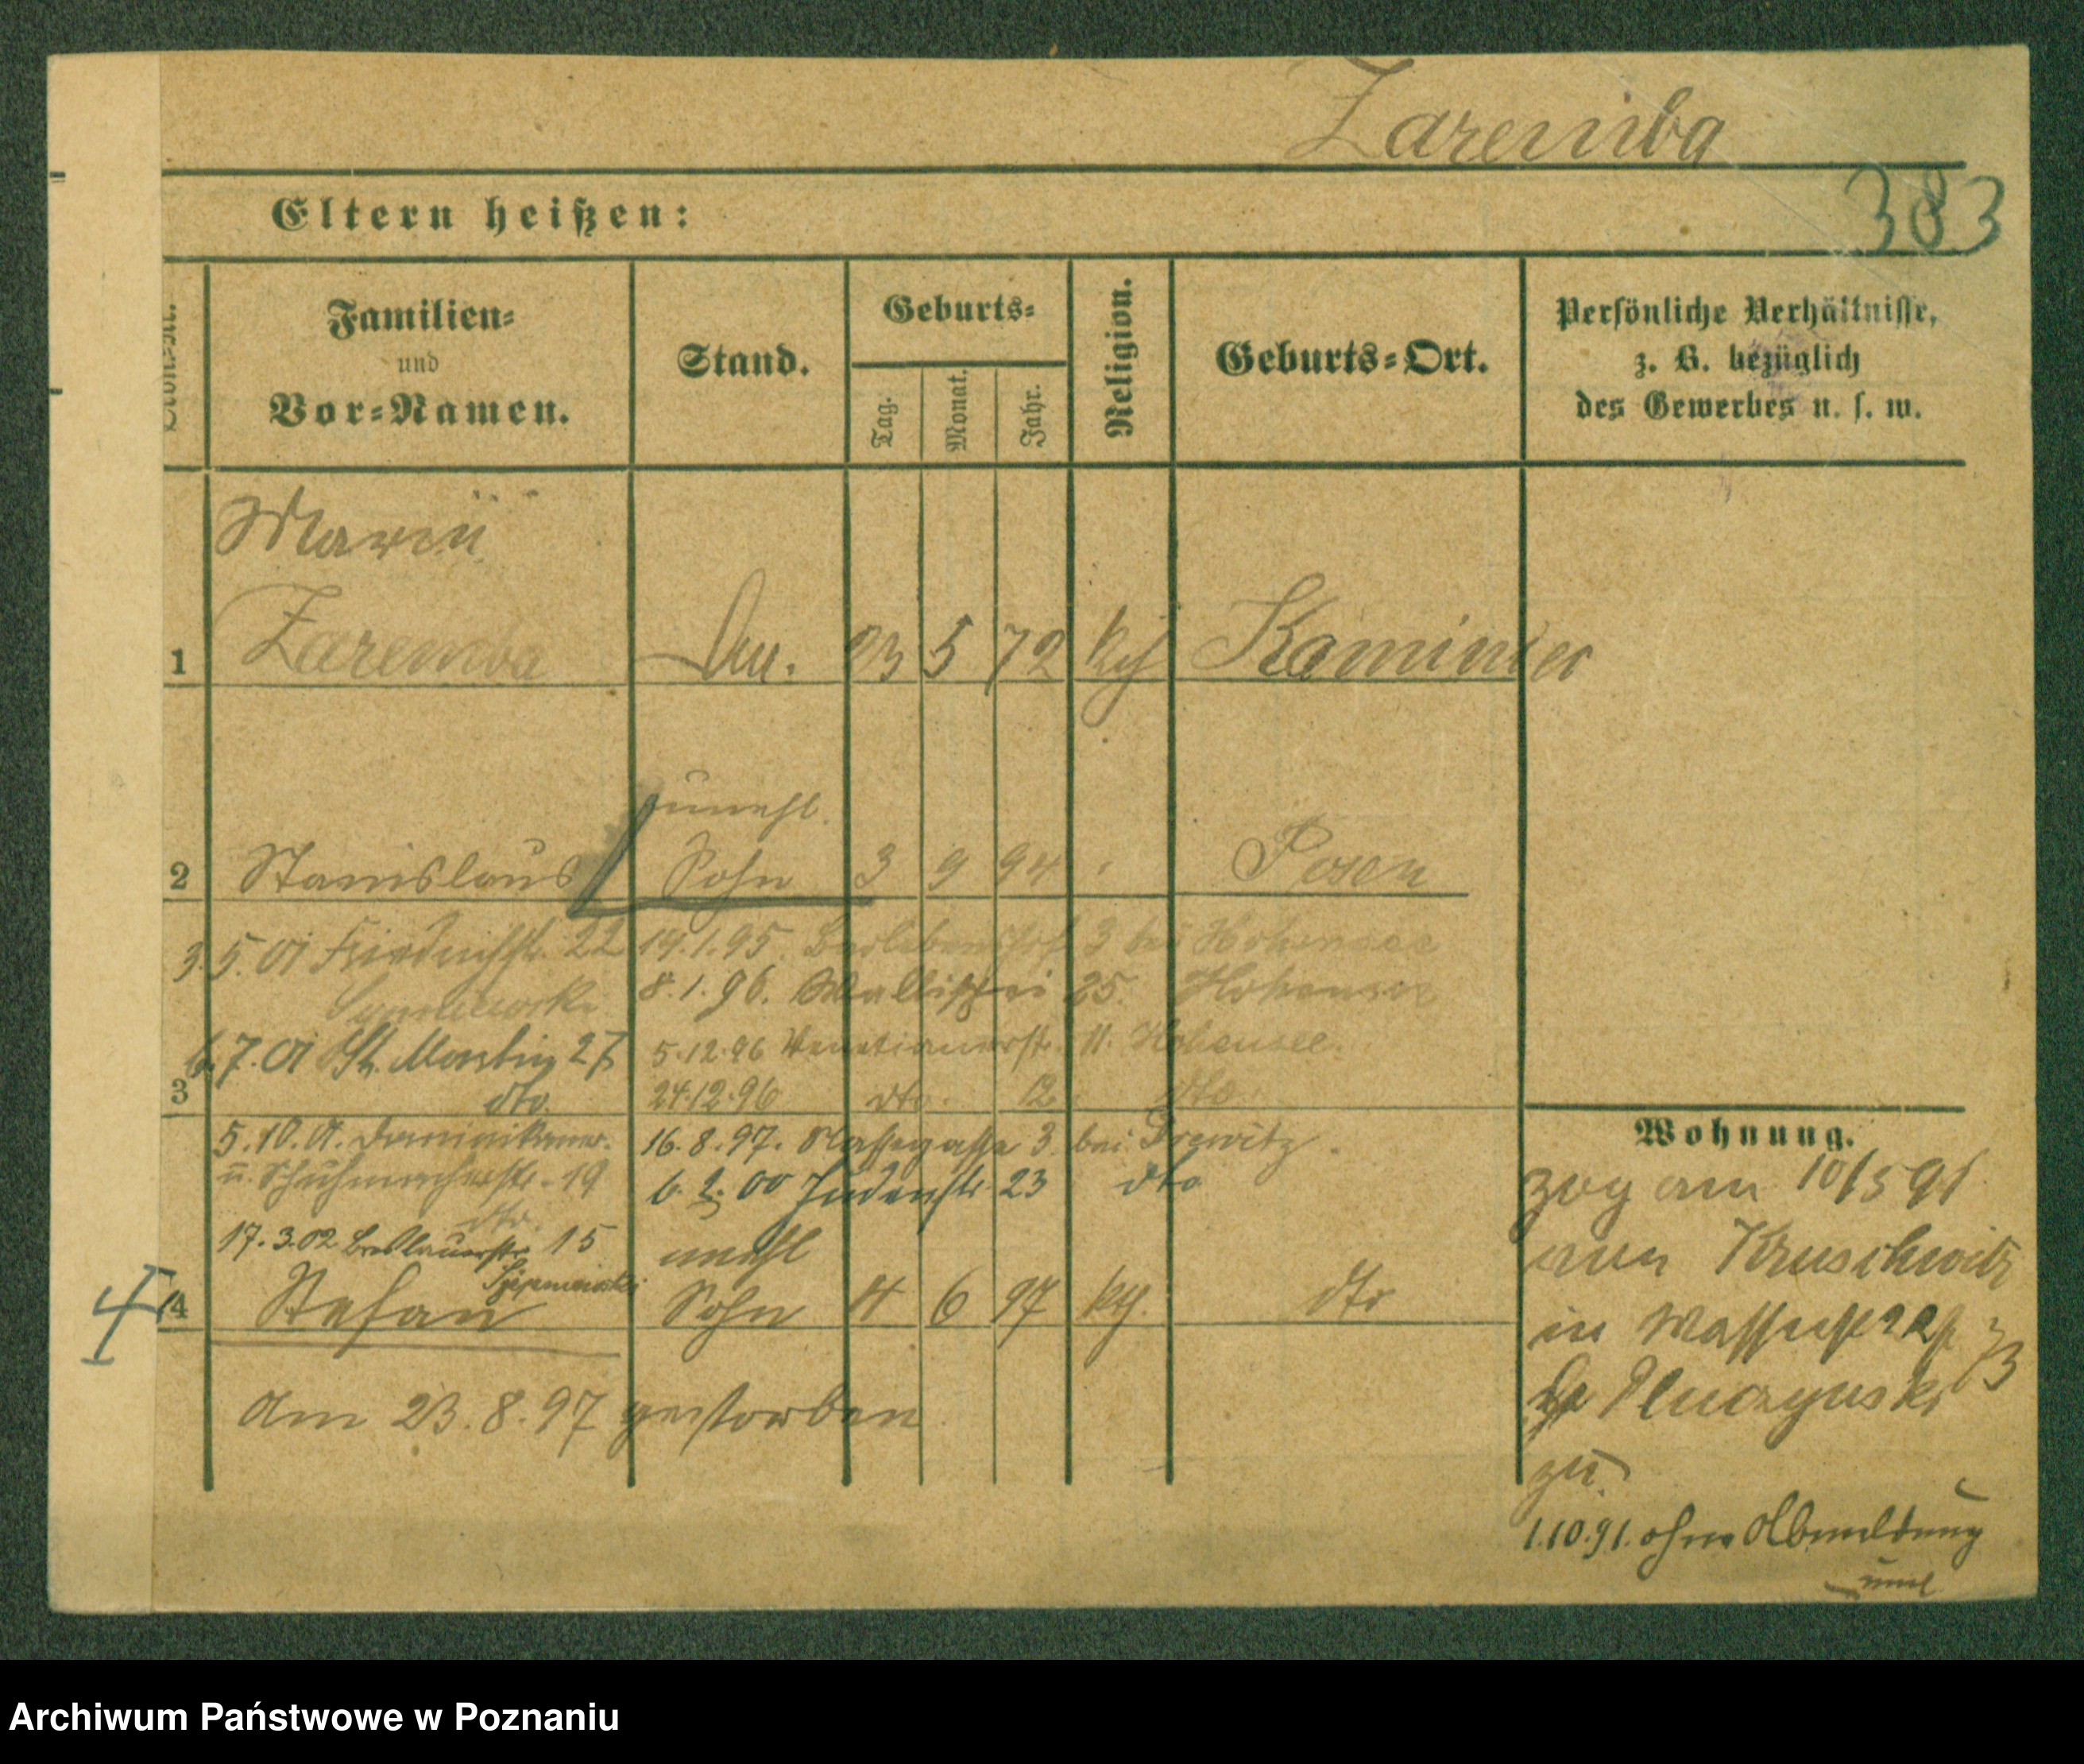 Zaremba
383
Eltern heißen:
Familien-
und
Vor-Namen.
Stand.
Geburts-
Tag.
Monat.
Jahr.
Religion.
Geburts-Ort.
Persönliche Verhältnisse,
z. B. bezüglich
des Gewerbes u. s. w.
Marie
1 Zaremba 23 5 72 kth
unehl.
2 Stanislaus Sohn 3 9 94 Posen
3.5.01 Friedrichstr. 22
19.1.95. 3 bei Hohensee
8.1.96. Wallischei 25. Hohensee
6.7.01 St. Martin 27
dto.
5.12.96 Venetianerstr. 11. Hohensee.
3
24.12.96 dto. 12. dto
5.10.01. Dominikaner-
u. Schuhmacherstr. 19
dto.
16.8.97. 3. bei Drewitz.
6.2.00 Judenstr. 23 dto
17.3.02 Breslauerstr. 15
unehl
4 Stefan Sohn 4 6 97 kth. dto
Am 23.8.97 gestorben
Wohnung.
zog am 10/5 91
aus Kruschwitz
in
73
zu.
1.10.91. ohne Abmeldung